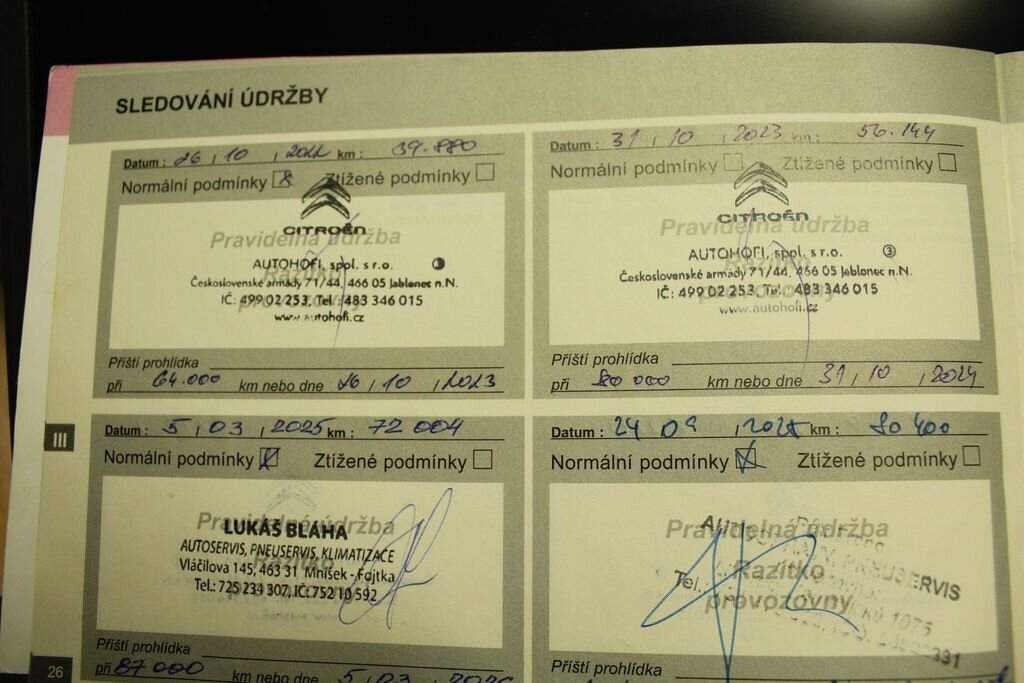 SLEDOVÁNÍ ÚDRŽBY
Datum : 26 / 10 , 2022 km : 39.880
Normální podmínky Ztížené podmínky
CITROËN
Pravidelná údržba
AUTOHOFI, spol. s r.o. 3
Razítko
Československé armády 71/44, 466 05 Jablonec n.N.
IČ: 499 02 253, Tel.: 483 346 015
provozovny
www.autohofi.cz
Příští prohlídka
při 64.000 km nebo dne 26 / 10 , 2023
Datum : 31 , 10 , 2023 km : 56.144
Normální podmínky Ztížené podmínky
CITROËN
Pravidelná údržba
AUTOHOFI, spol. s r.o. 3
Razítko
Československé armády 71/44, 466 05 Jablonec n.N.
IČ: 499 02 253, Tel.: 483 346 015
provozovny
www.autohofi.cz
Příští prohlídka
při 80 000 km nebo dne 31 , 10 , 2024
III
Datum : 5 , 03 , 2025 km : 72 004
Normální podmínky Ztížené podmínky
Pravidelná údržba
LUKÁŠ BLÁHA
AUTOSERVIS, PNEUSERVIS, KLIMATIZACE
Vláčilova 145, 463 31 Mníšek - Fojtka
Tel.: 725 234 307, IČ: 752 10 592
Příští prohlídka
při 87 000 km nebo dne 5 , 03 , 2026
26
Datum : 24 09 , km : 80 400
Normální podmínky Ztížené podmínky
Pravidelná údržba
PNEUSERVIS
Razítko
Tel.
provozovny
1075
Příští prohlídka